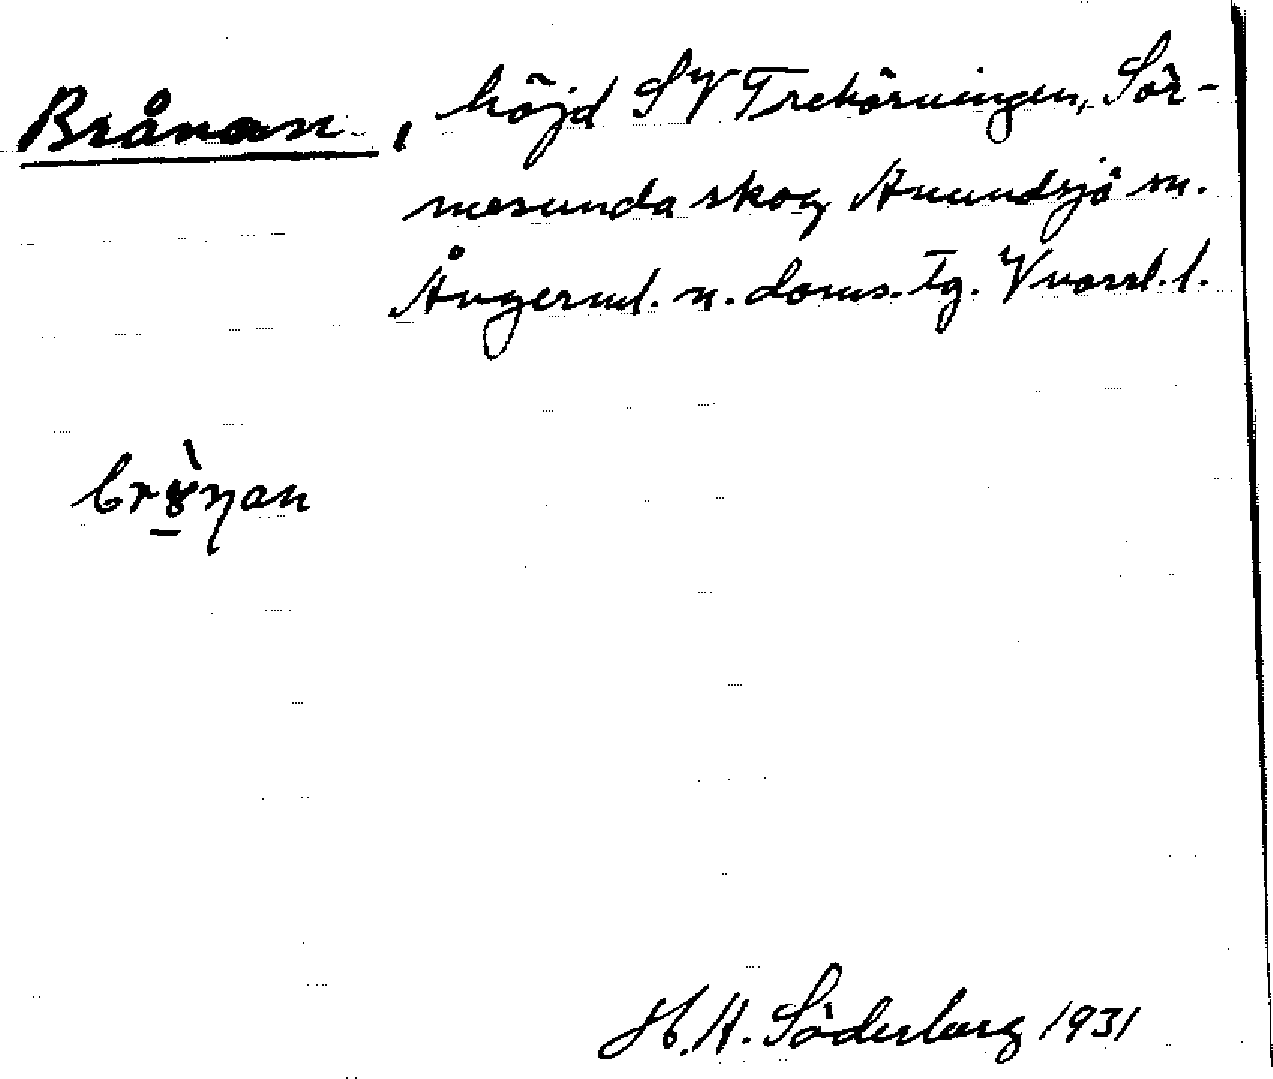 Brånan, höjd SV Trehörningen, Sör-
mesunda skog Anundsjö sn.
Ångerml. n. doms. tg. Vnorrl. l.
H. A. Söderberg 1931